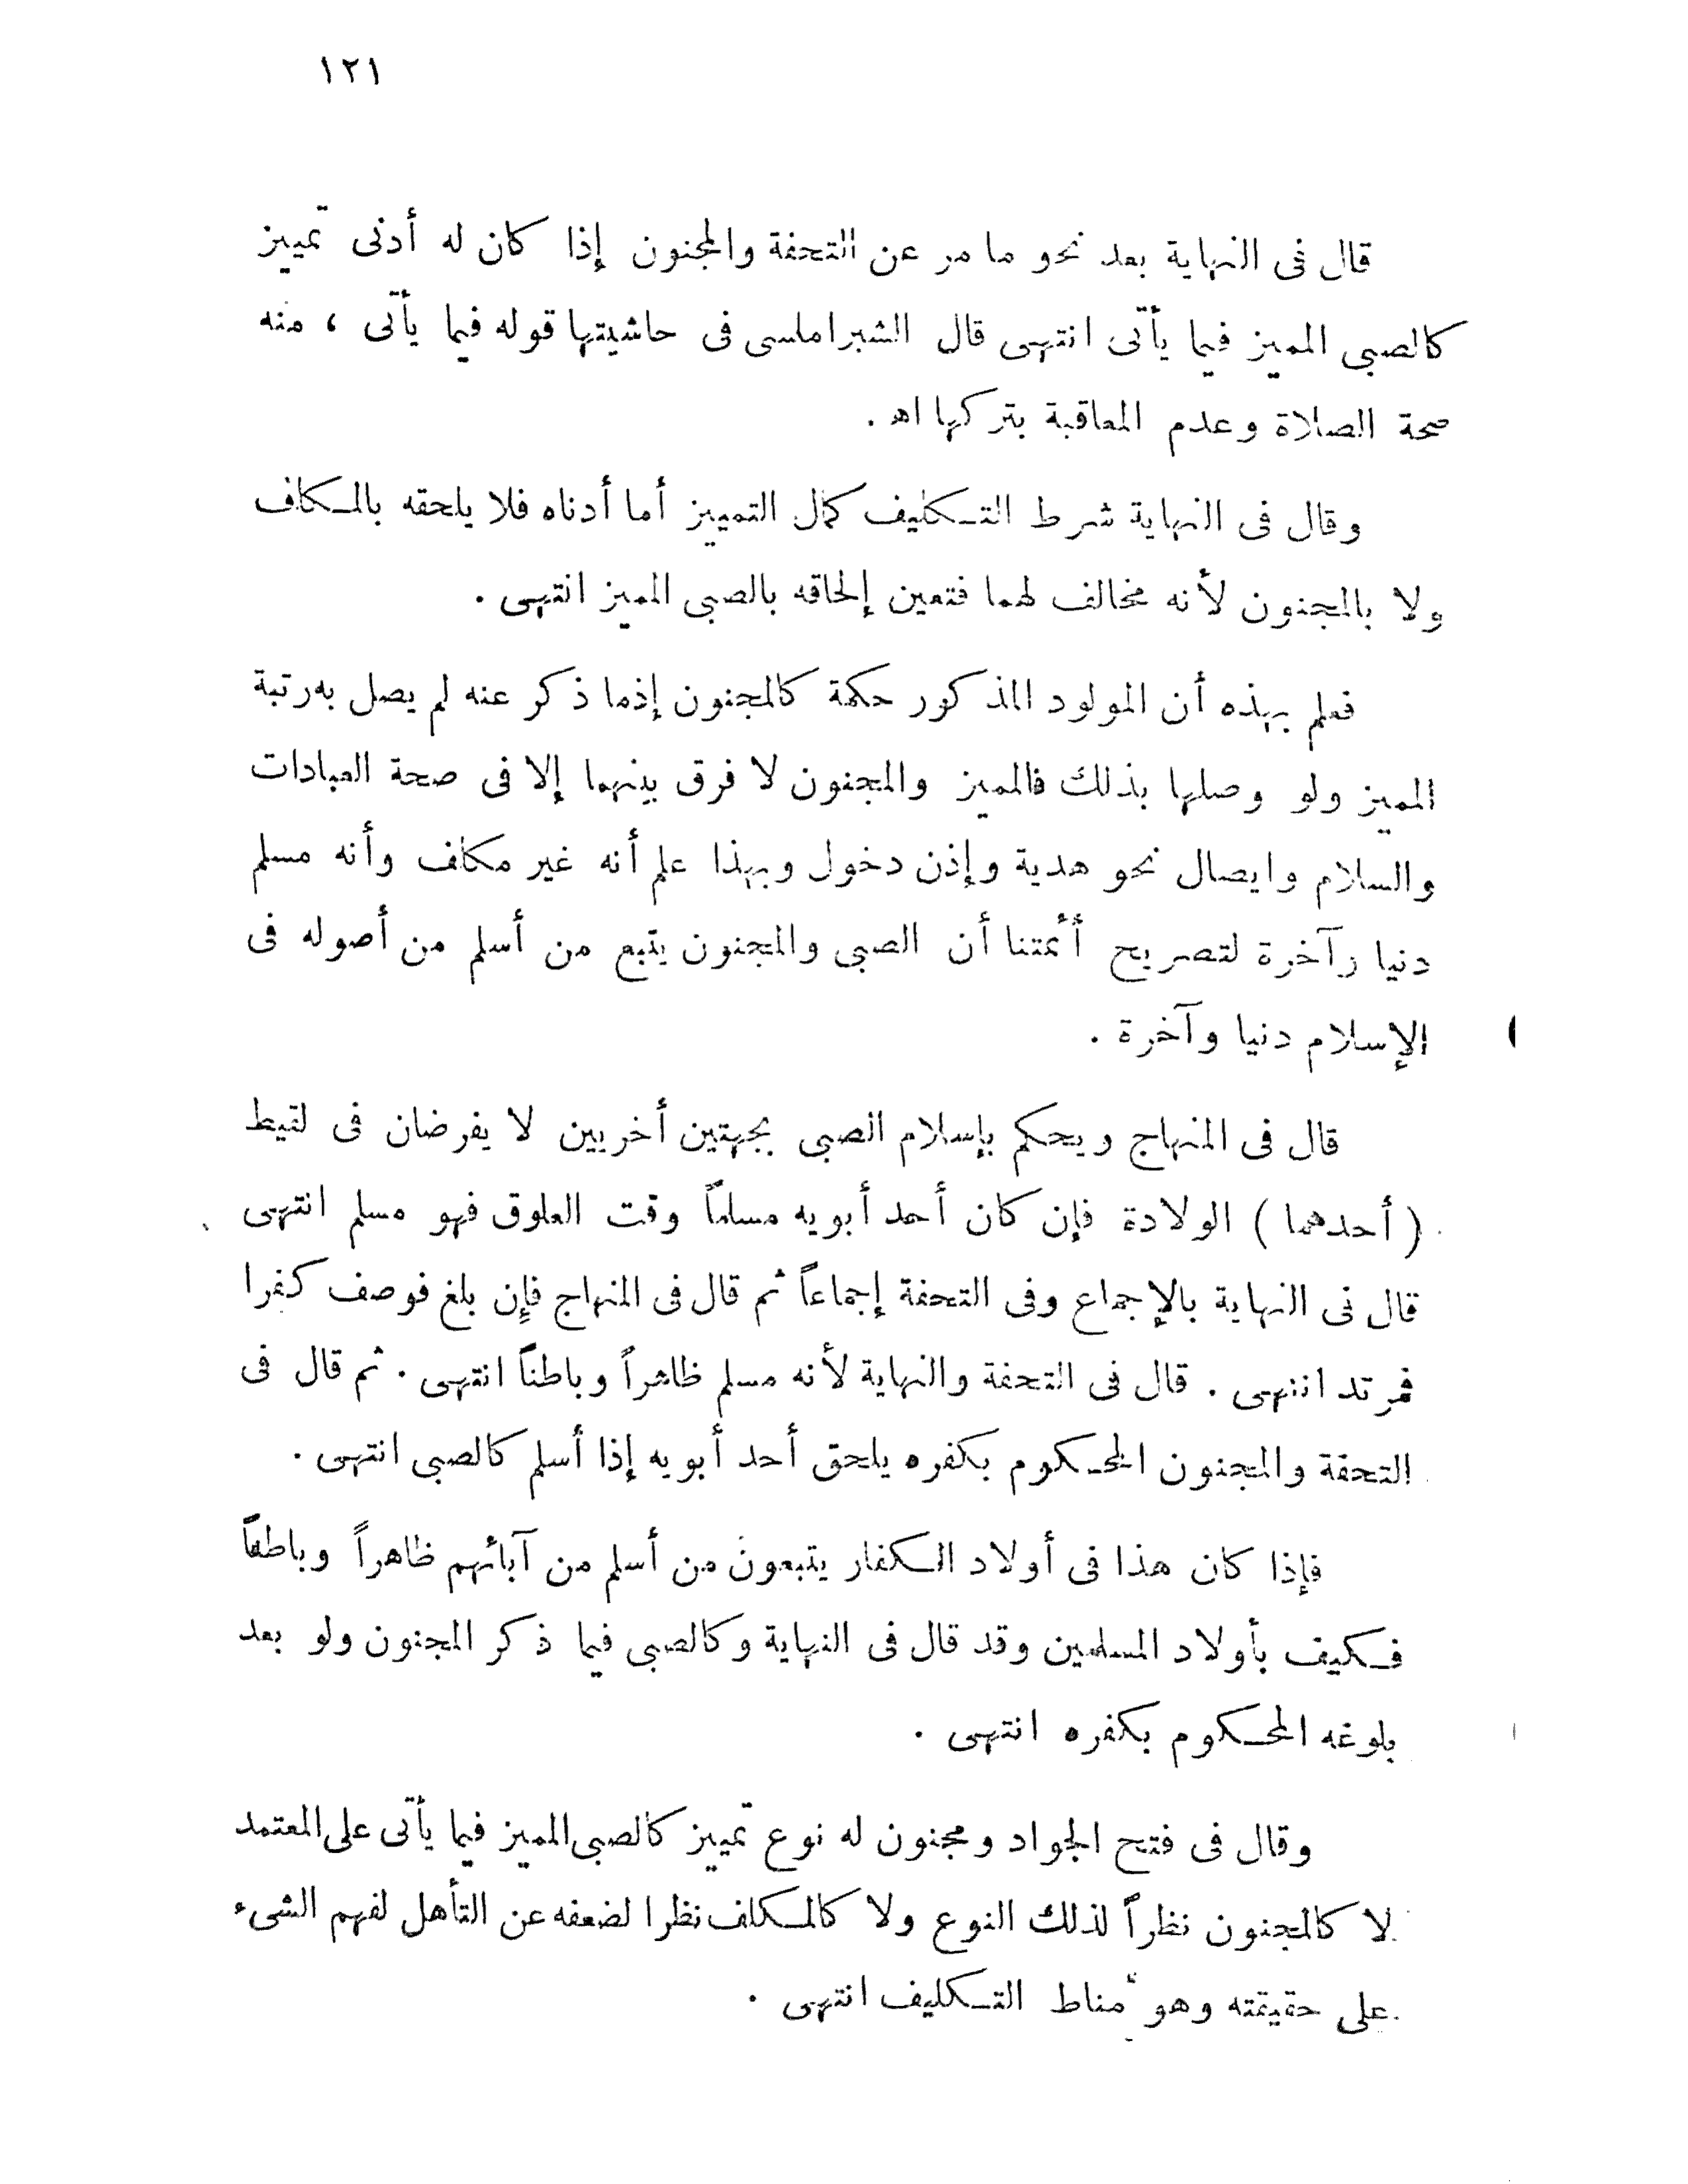 ١٢١
قال فى النهاية بعد نحو ما مر عن التحفة والمجنون إذا كان له أدنى تمييز
كالصبى المميز فيما يأتى انتهى قال الشبراملسى فى حاشيتها قوله فيما يأتى ، منه
صحة الصلاة وعدم المعاقبة بتركها اهـ .
وقال فى النهاية شرط التكليف كمال التمييز أما أدناه فلا يلحقه بالمكلف
ولا بالمجنون لأنه مخالف لهما فتعين إلحاقه بالصبى المميز انتهى .
فعلم بهذه أن المولود المذكور حكمة كالمجنون إذما ذكر عنه لم يصل به رتبة
المميز ولو وصلها بذلك فالمميز والمجنون لا فرق بينهما إلا فى صحة العبادات
والسلام وايصال نحو هدية وإذن دخول وبهذا علم أنه غير مكلف وأنه مسلم
دنيا وآخرة لتصريح أئمتنا أن الصبى والمجنون يتبع من أسلم من أصوله فى
الإسلام دنيا وآخرة .
قال فى المنهاج ويحكم بإسلام الصبى بجهتين أخريين لا يفرضان فى لقيط
( أحدهما ) الولادة فإن كان أحد أبويه مسلماً وقت العلوق فهو مسلم انتهى
قال فى النهاية بالإجماع وفى التحفة إجماعاً ثم قال فى المنهاج فإن بلغ فوصف كفرا
فمرتد انتهى . قال فى التحفة والنهاية لأنه مسلم ظاهراً وباطناً انتهى . ثم قال فى
التحفة والمجنون المحكوم بكفره يلحق أحد أبويه إذا أسلم كالصبى انتهى .
فإذا كان هذا فى أولاد الكفار يتبعون من أسلم من آبائهم ظاهراً وباطناً
فكيف بأولاد المسلمين وقد قال فى النهاية وكالصبى فيما ذكر المجنون ولو بعد
بلوغه المحكوم بكفره انتهى .
وقال فى فتح الجواد ومجنون له نوع تمييز كالصبى المميز فيما يأتى على المعتمد
لا كالمجنون نظراً لذلك النوع ولا كالمكلف نظرا لضعفه عن التأهل لفهم الشىء
على حقيقته وهو مناط التكليف انتهى .